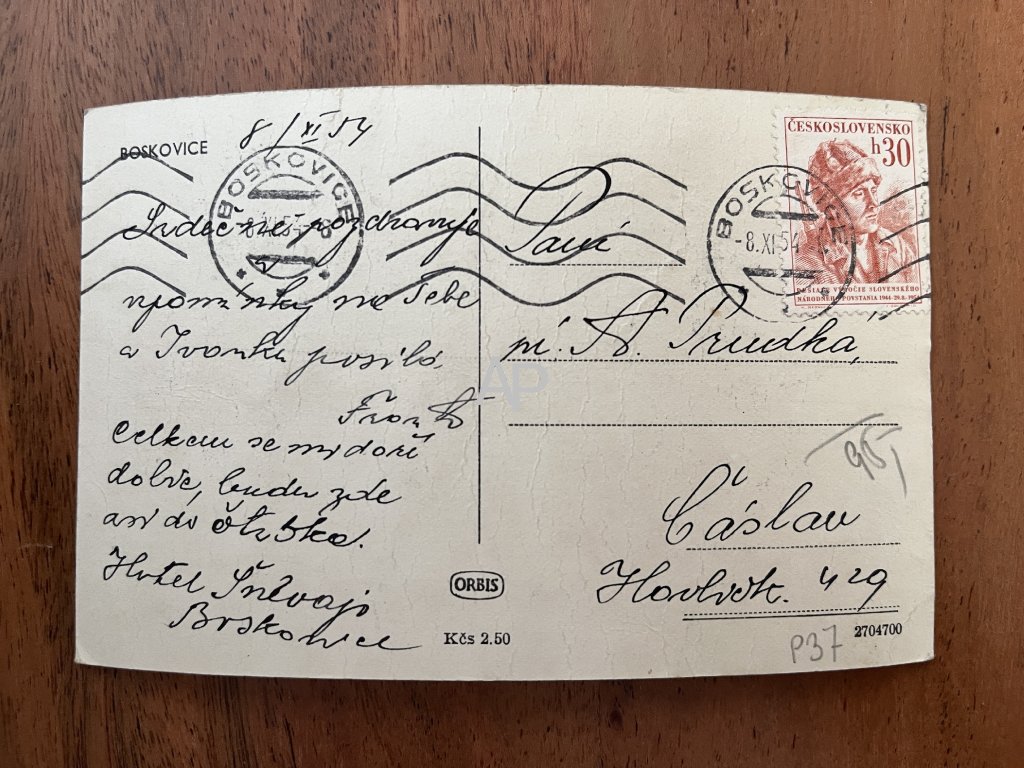 BOSKOVICE
8/XI 54
BOSKOVICE
Srdečné pozdravy
vzpomínky na Tebe
a Ivanku posílá
Celkem se mi daří
dobře, budu zde
asi do čtvrtka.
Hotel
Boskovice
ORBIS
Kčs 2.50
BOSKOVICE
-8.XI.54
ČESKOSLOVENSKO
h 30
VÝROČIE SLOVENSKÉHO
NÁRODNÉHO POVSTANIA 1944-29.8-1954
Paní
pí. A. Prudká,
AP
Čáslav
Havlíčk. 429
P37
2704700